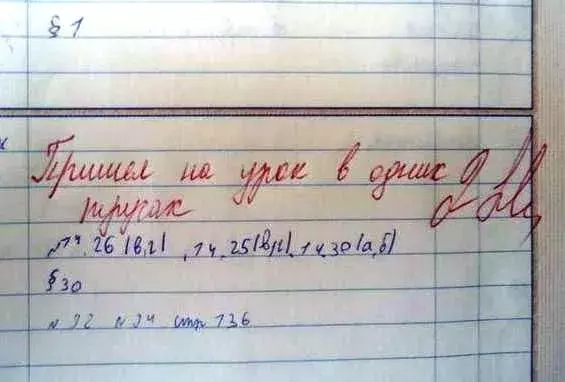 § 1
Пришел на урок в одних
трусах
№14.26(в,г), 14.25(в,г), 14.30(а,б)
§ 30
№ 92 № 94 стр 136